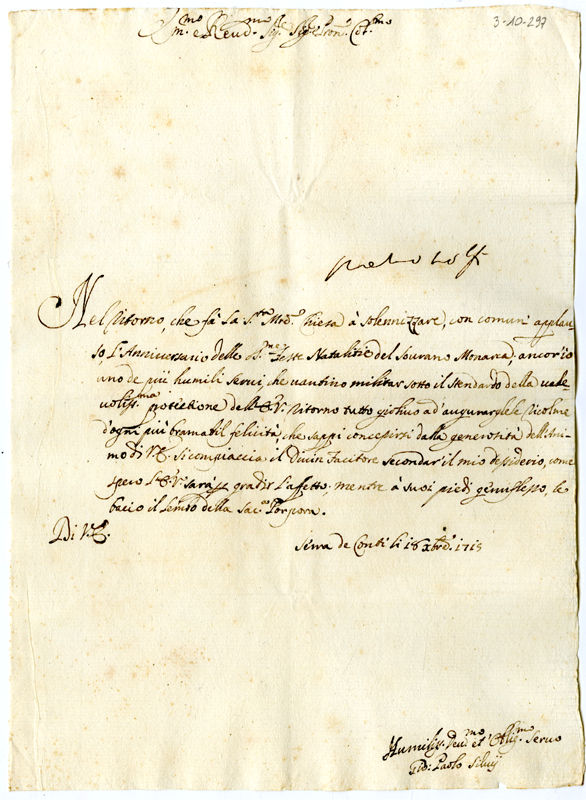 3-10-297
Em.mo e Reud.mo Sig.re Sig.re Pron. Col.mo
Nel ritorno, che fà La S.ta Mad.e Chiesa à Solennizzare, con comun' applau-
so, L'Anniuersario delle S.me feste Natalitie del Sourano Monarca; ancor'io
uno de più humili Serui, che uantino militar sotto il stendardo della uale-
uoliss.ma protettione dell'E.V. Ritorno tutto giuliuo ad'augurargliele Ricolme
d'ogni più bramabil felicità, che sappi concepirsi dalla generosità dell'Ani-
mo di V.E. Si compiaccia il Diuin Facitore secondar il mio desiderio, come
spero L'E.V. sarà p gradir L'affetto; mentre à suoi piedi genuflesso, le
bacio il Lembo della Sac.a Porpora.
Di V.E.
Serra de Conti li 18 Xbre 1715
Humiliss. Deu.mo et Oblig.mo Seruo
Gio: Paolo Siluij